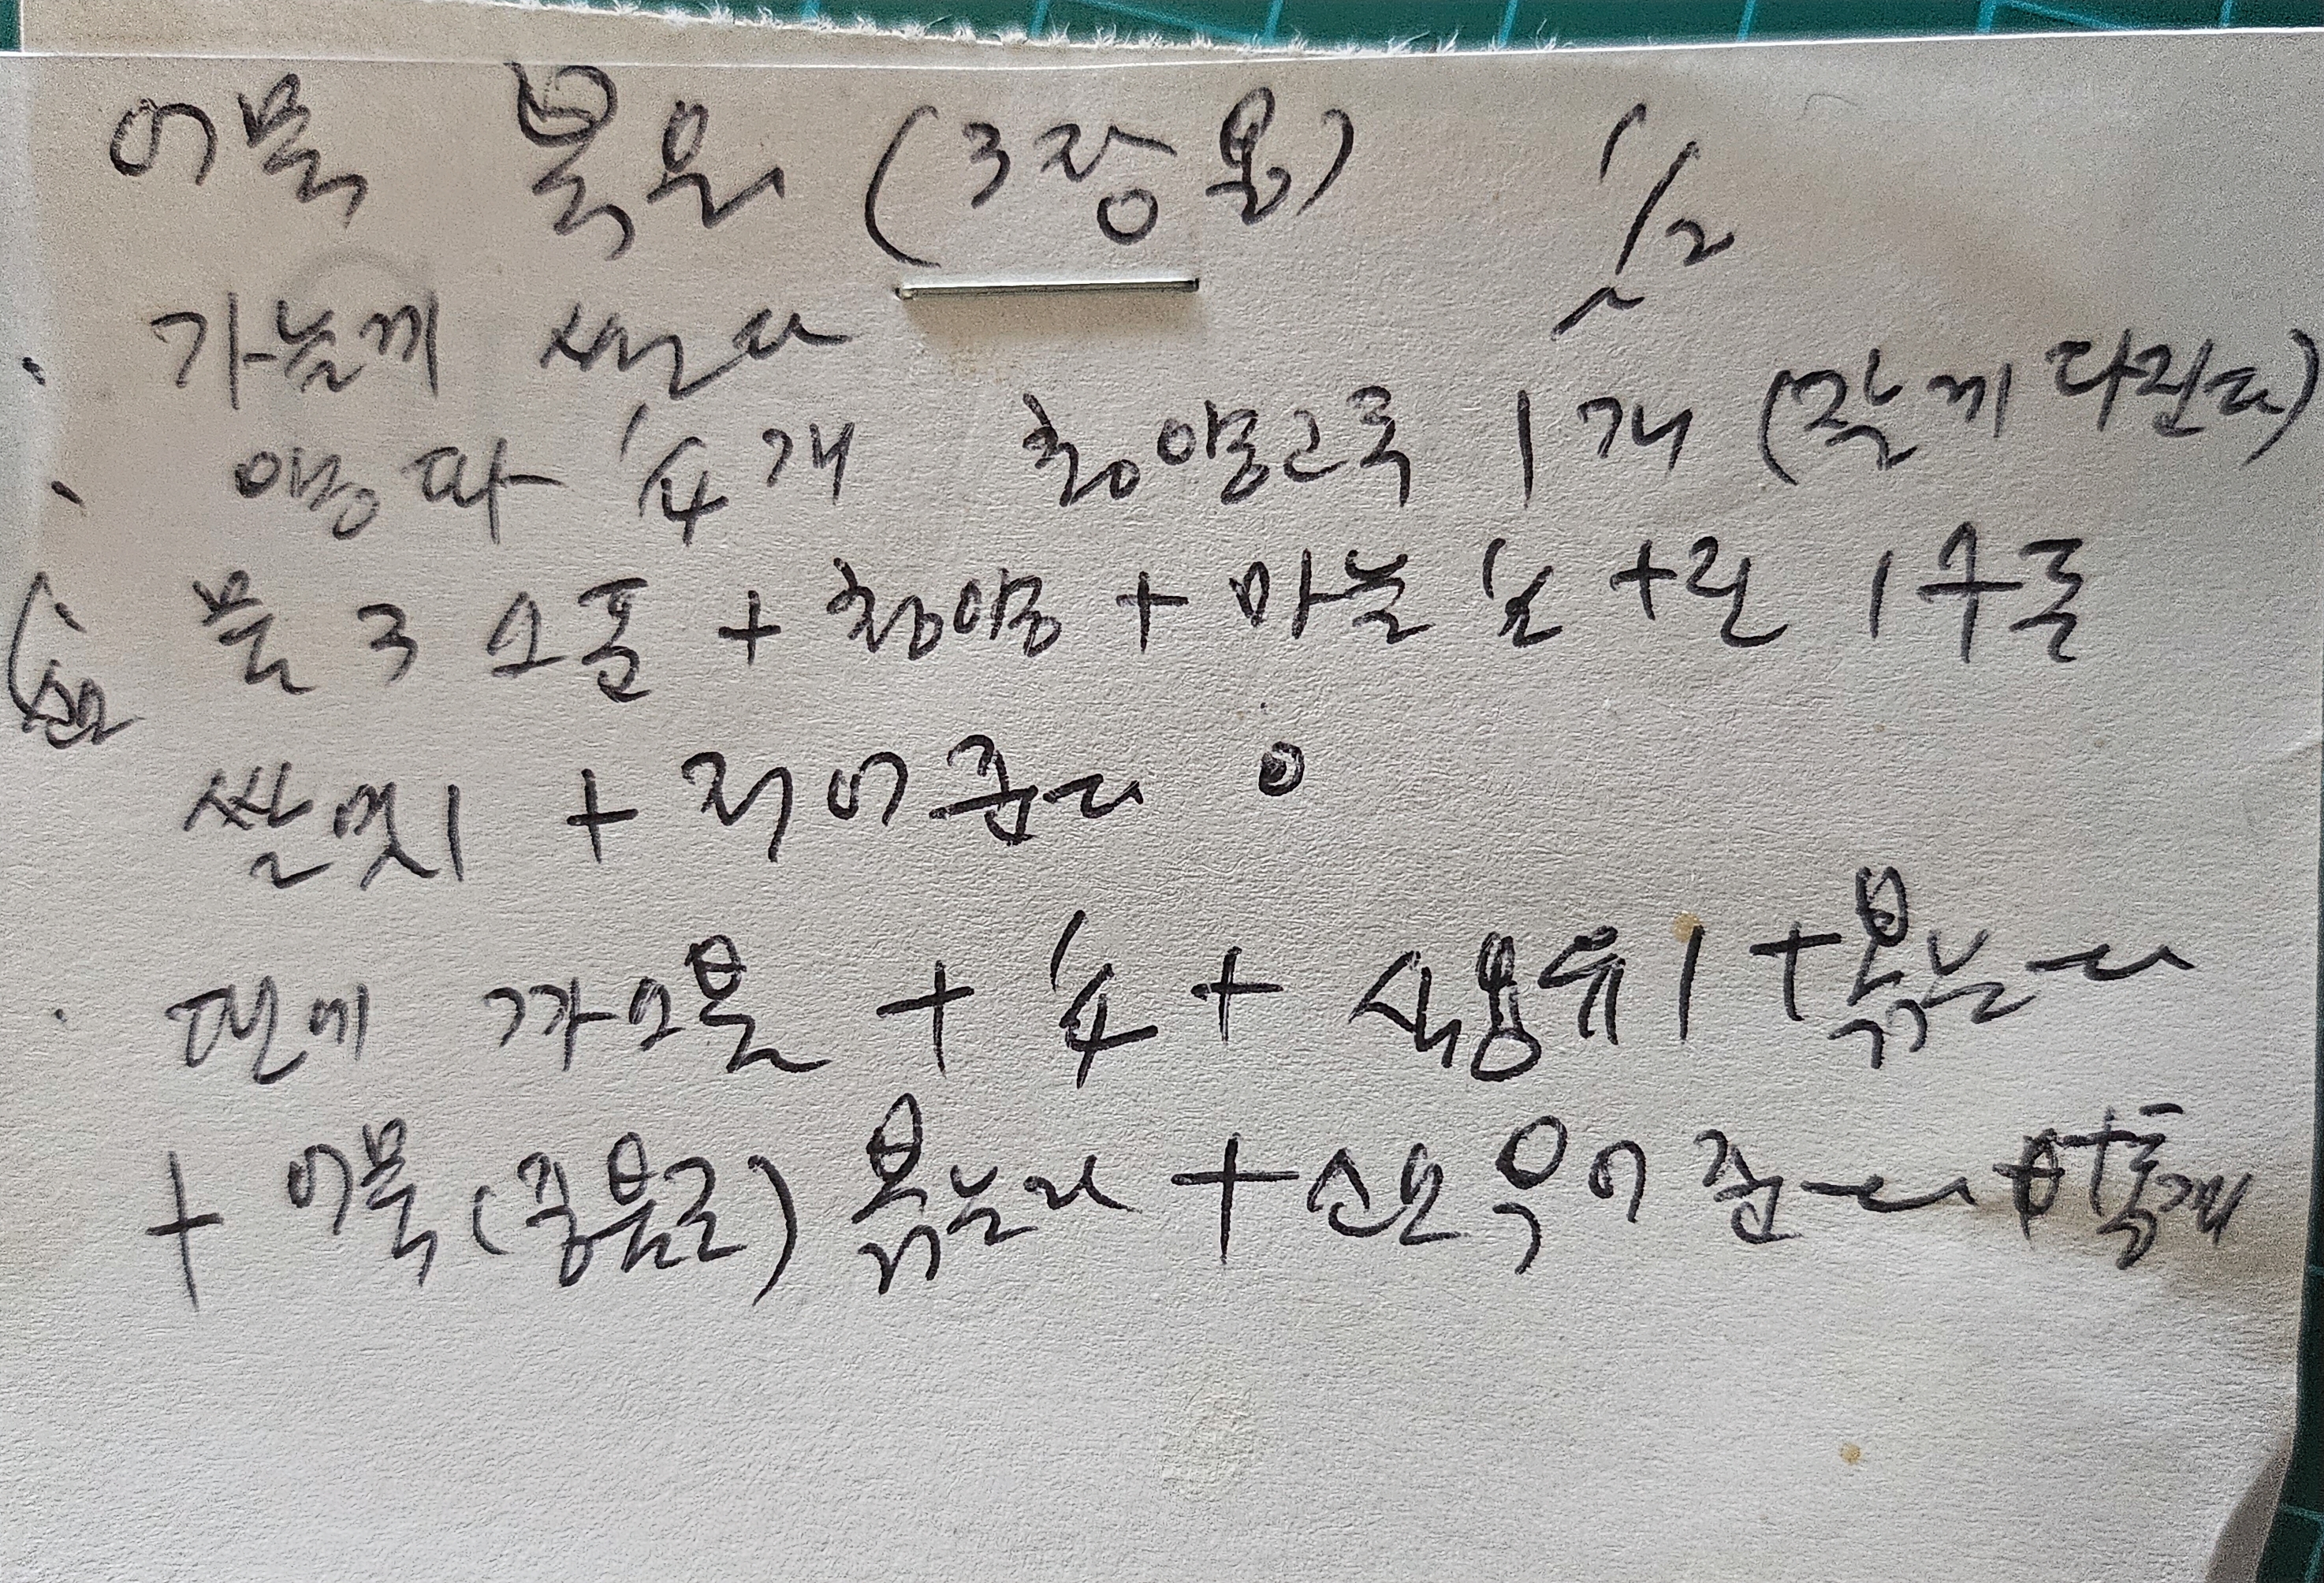 어묵 볶음 (3장용)
가늘게 썬다
1/2
양파 1/4개 청양고추 1개 (잘게 다진다)
물 3스푼 + 청양 + 마늘 1/2 + 진 1수푼
쌀엿 1 + 저어준다
소스
팬에 까오물 + 1/4 + 식용유 1 + 볶는다
+ 어묵 (중불로) 볶는다 + 소스 부어준다 + 통깨